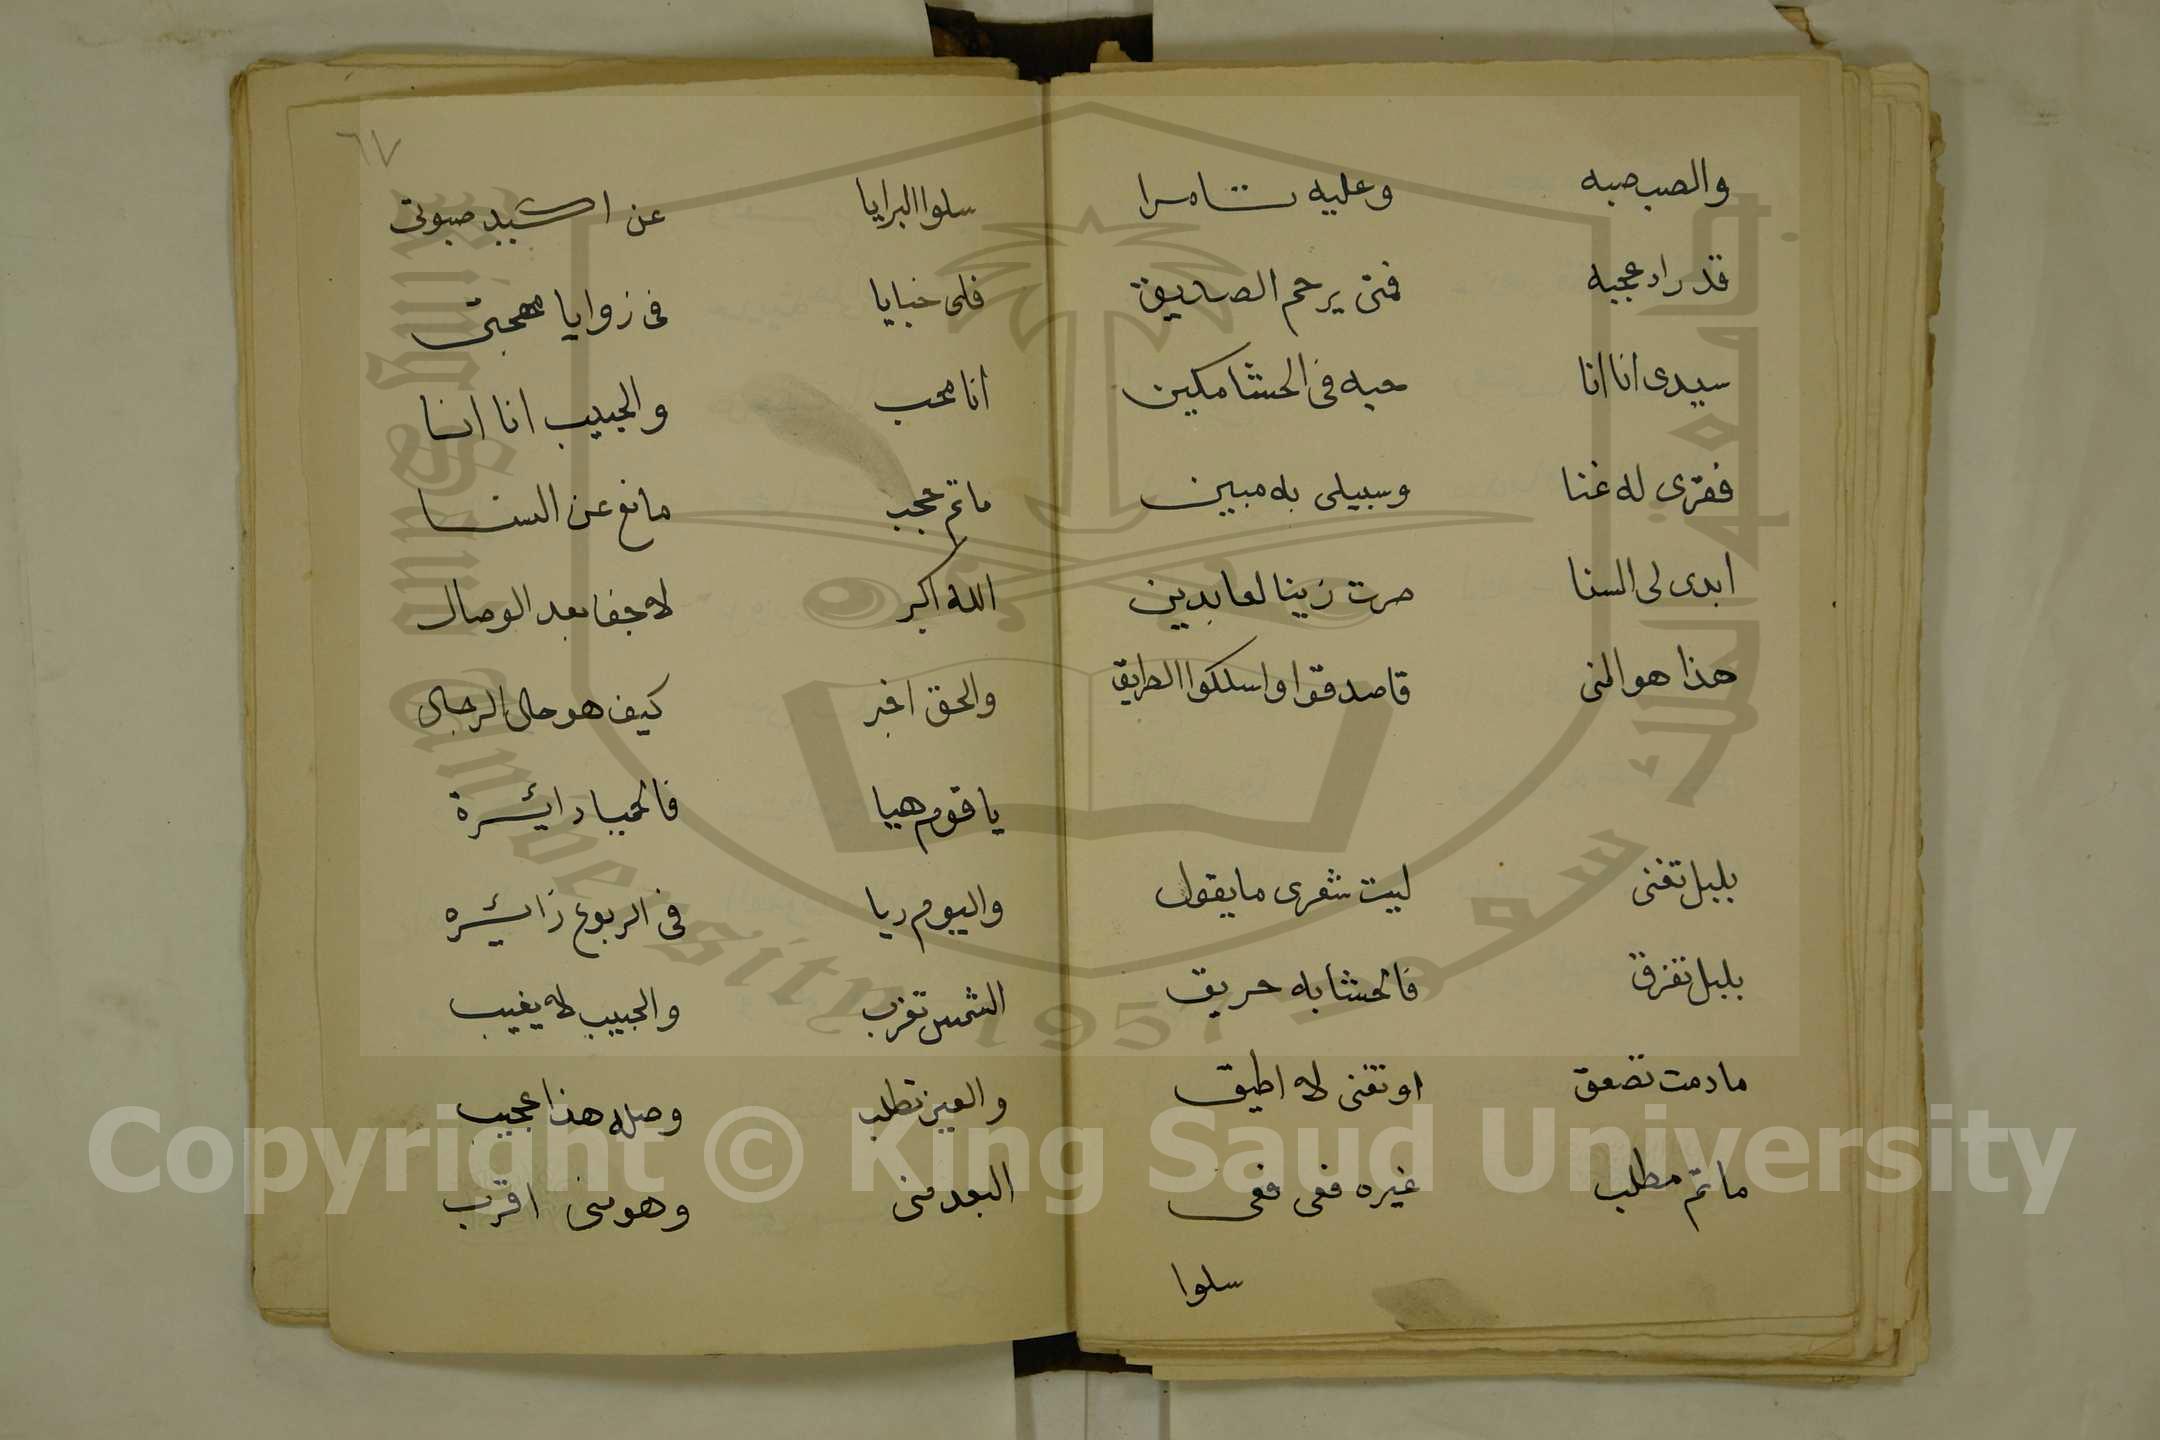 والصب صبه وعليه تامرا
قد راد عجبه فمتى يرحم الصديق
سيدى انا انا حبه فى الحشا مكين
فقرى له غنا وسبيلى به مبين
ابدى لى السنا صرت زينا لعابدين
هذا هو المنى فاصدقوا واسلكوا الطريق
بلبل تغنى ليت شعرى ما يقول
بلبل تفرق فالحشا به حريق
مادمت تصعق او تغنى لا اطيق
ماثم مطلب غيره ففى ففى
سلوا
٦٧
سلوا البرايا عن اكسيد صبوتى
فلى خبايا فى زوايا مهجتى
انا محب والحبيب انا انا
ماثم عجب مانع عن السنا
الله اكبر لا جفا بعد الوصال
والحق اخبر كيف هو حال الرجال
يا قوم هيا فالحميا دائرة
واليوم ريا فى الربوع زائره
الشمس تغرب والحبيب لا يغيب
والعين تطلب وصله هذا عجيب
البعد منى وهو منى اقرب
Copyright © King Saud University
King Saud University
1957
جامعة الملك سعود